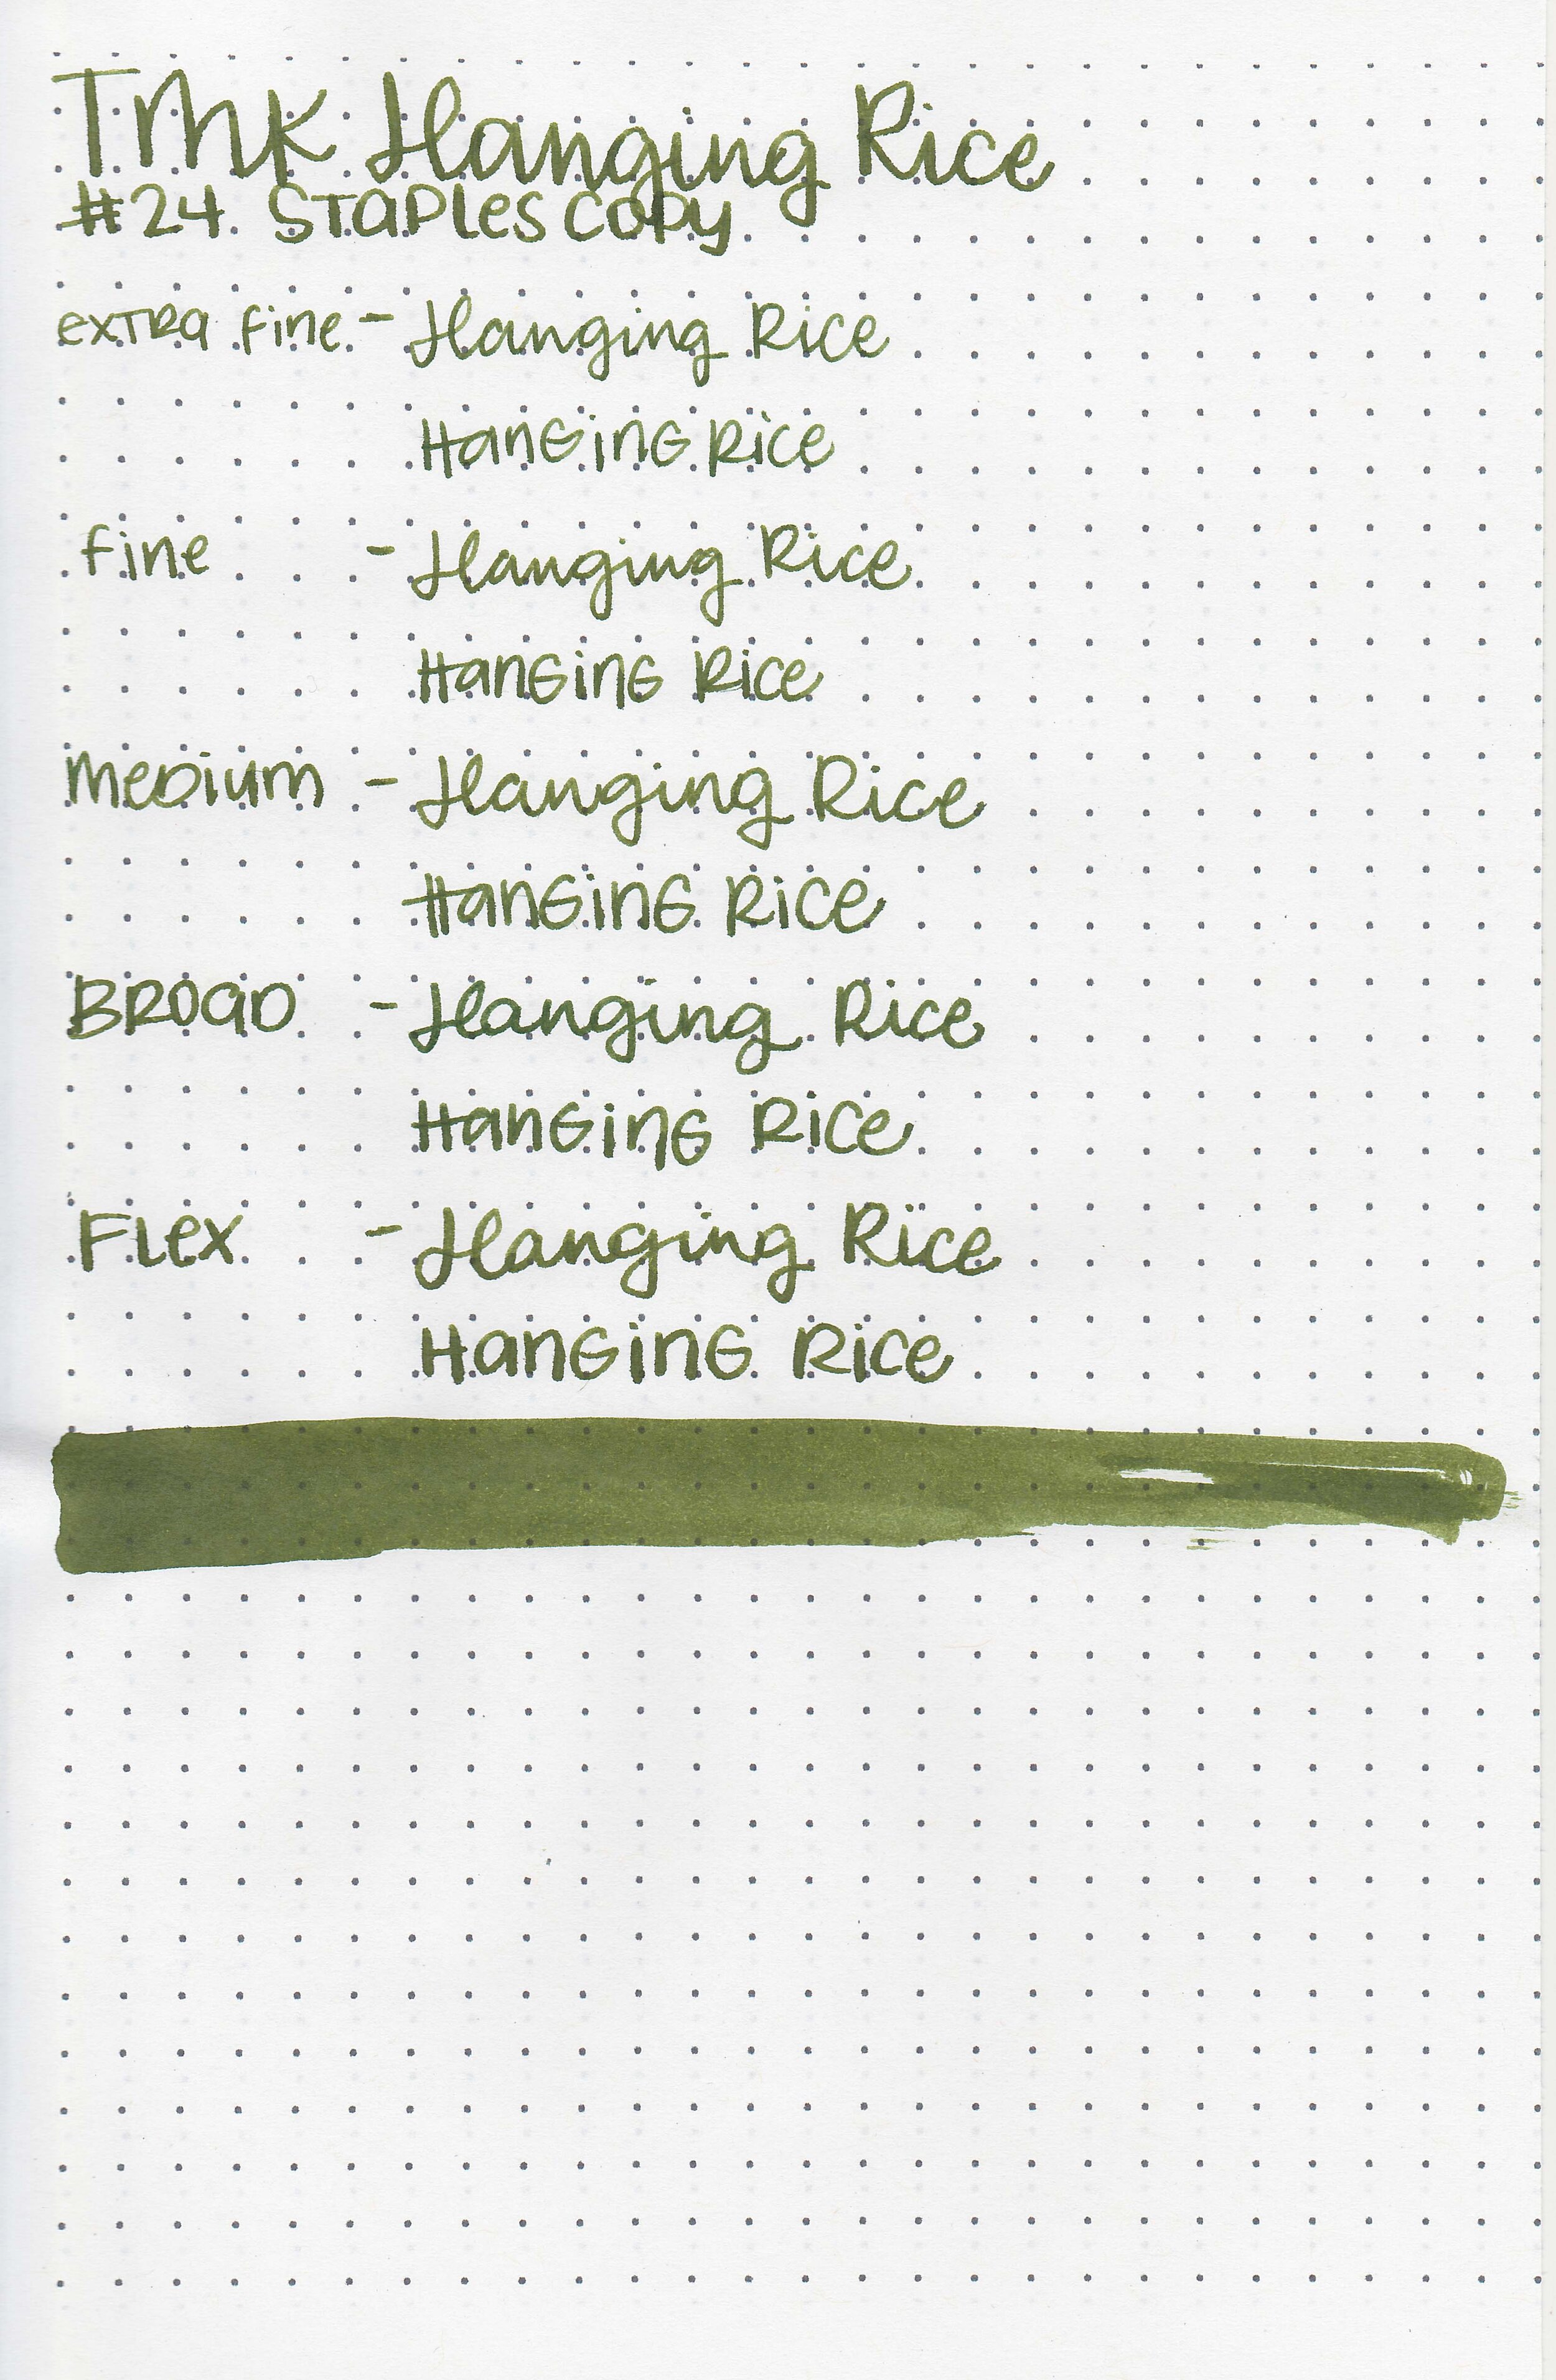 TMK Hanging Rice
#24 Staples copy
extra fine - Hanging Rice
Hanging Rice
fine - Hanging Rice
Hanging Rice
Medium - Hanging Rice
Hanging Rice
Broad - Hanging Rice
Hanging Rice
Flex - Hanging Rice
Hanging Rice